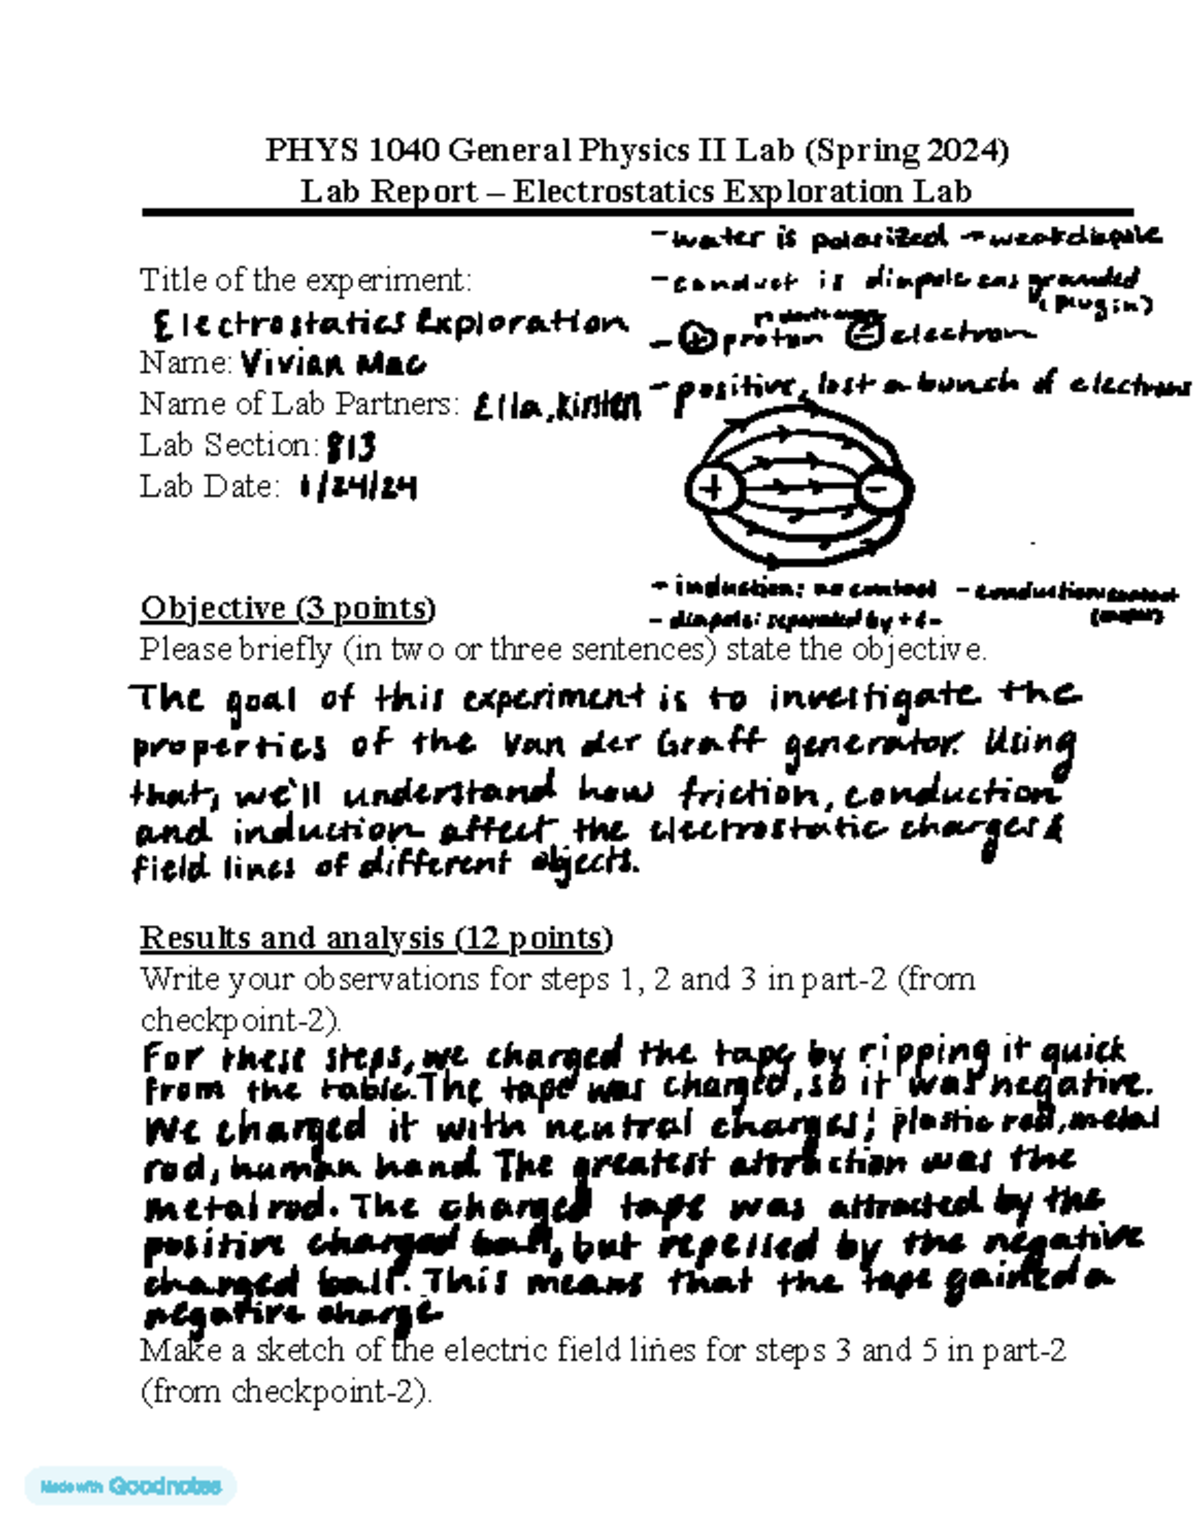 PHYS 1040 General Physics II Lab (Spring 2024)
Lab Report – Electrostatics Exploration Lab
- water is polarized → weak dipole
Title of the experiment:
- conduct is dinpole can grounded
(plug in)
Electrostatics Exploration
- + proton - electron
Name: Vivian Mac
- positive, lost a bunch of electrons
Name of Lab Partners: Ella, Kirsten
Lab Section: 813
Lab Date: 1/24/24
+ -
- induction: no contact - conduction: contact
- dinpole: separated by + & -
Objective (3 points)
Please briefly (in two or three sentences) state the objective.
The goal of this experiment is to investigate the
properties of the Van der Graff generator. Using
that, we'll understand how friction, conduction
and induction affect the electrostatic charges &
field lines of different objects.
Results and analysis (12 points)
Write your observations for steps 1, 2 and 3 in part-2 (from
checkpoint-2).
For these steps, we charged the tape by ripping it quick
from the table. The tape was charged, so it was negative.
We charged it with neutral charges; plastic rod, metal
rod, human hand. The greatest attraction was the
metal rod. The charged tape was attracted by the
positive charged ball, but repelled by the negative
charged ball. This means that the tape gained a
negative charge
Make a sketch of the electric field lines for steps 3 and 5 in part-2
(from checkpoint-2).
Made with Goodnotes